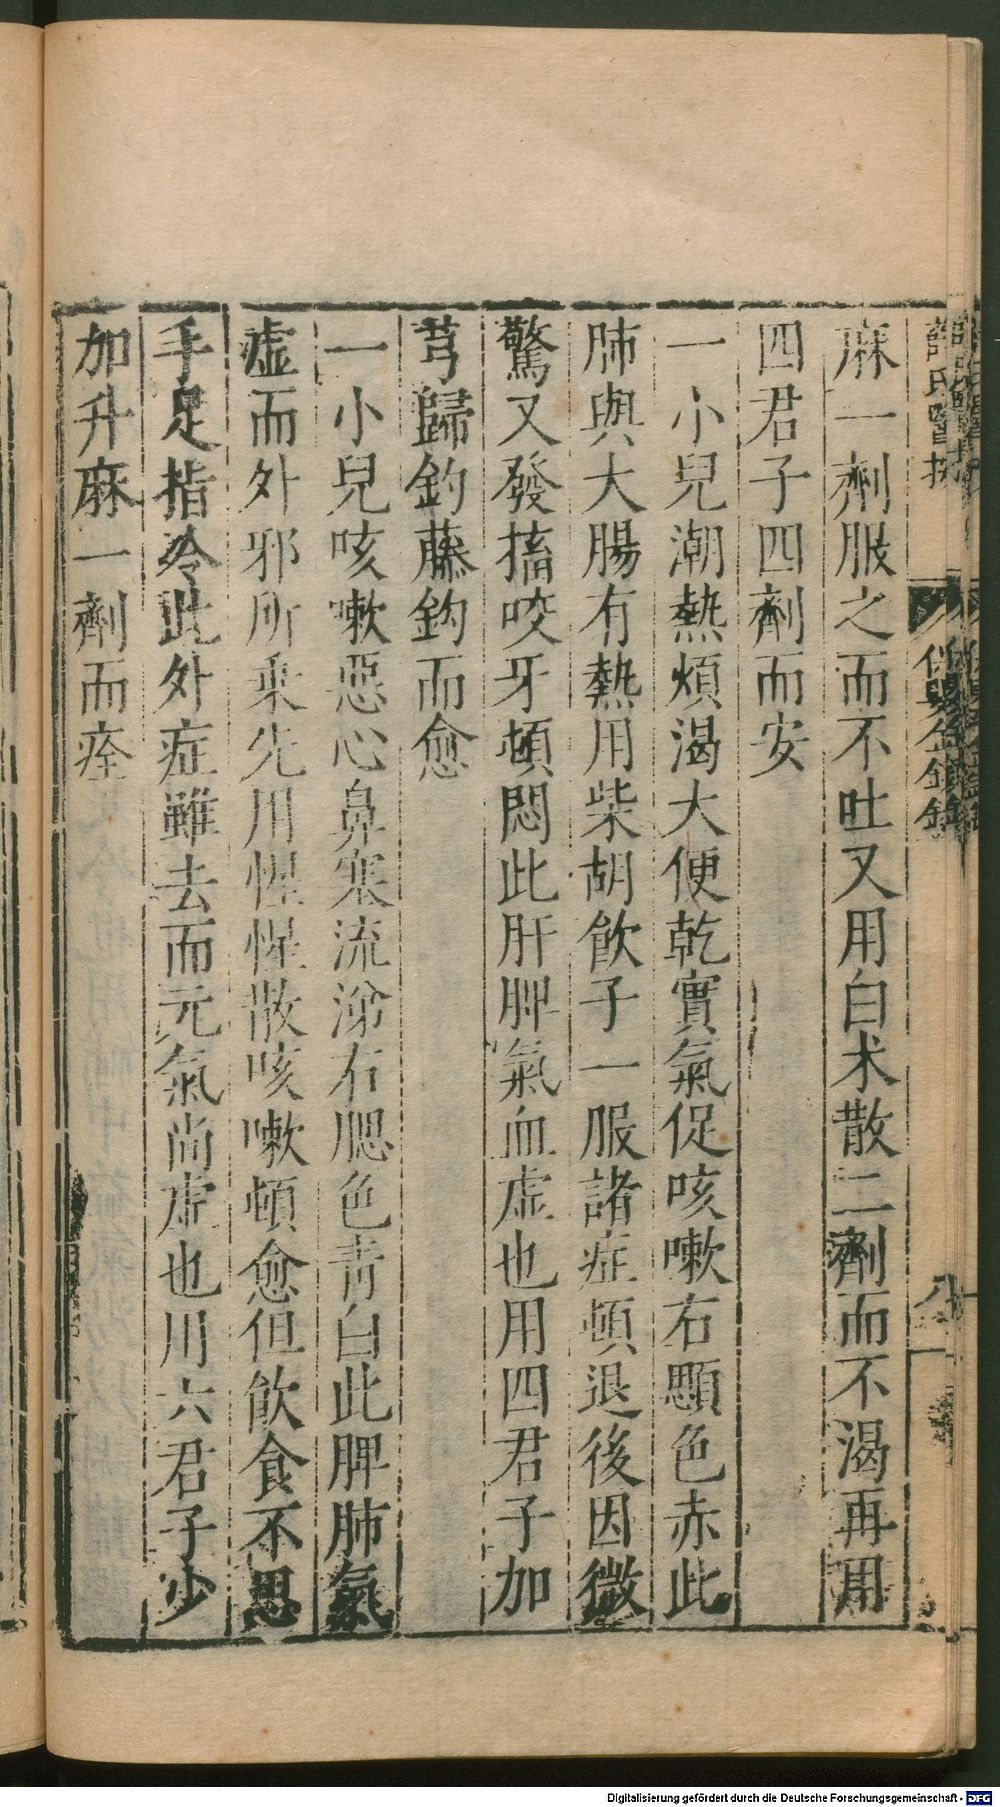 薛氏醫按
保嬰金鏡錄
八
麻一劑服之而不吐又用白术散二劑而不渴再用
四君子四劑而安
一小兒潮熱煩渴大便乾實氣促咳嗽右顋色赤此
肺與大腸有熱用柴胡飲子一服諸症頓退後因微
驚又發搐咬牙頓悶此肝脾氣血虛也用四君子加
芎歸鈎藤鈎而愈
一小兒咳嗽惡心鼻塞流涕右腮色青白此脾肺氣
虛而外邪所乘先用惺惺散咳嗽頓愈但飲食不思
手足指冷此外症雖去而元氣尚虛也用六君子少
加升麻一劑而痊
Digitalisierung gefördert durch die Deutsche Forschungsgemeinschaft - DFG